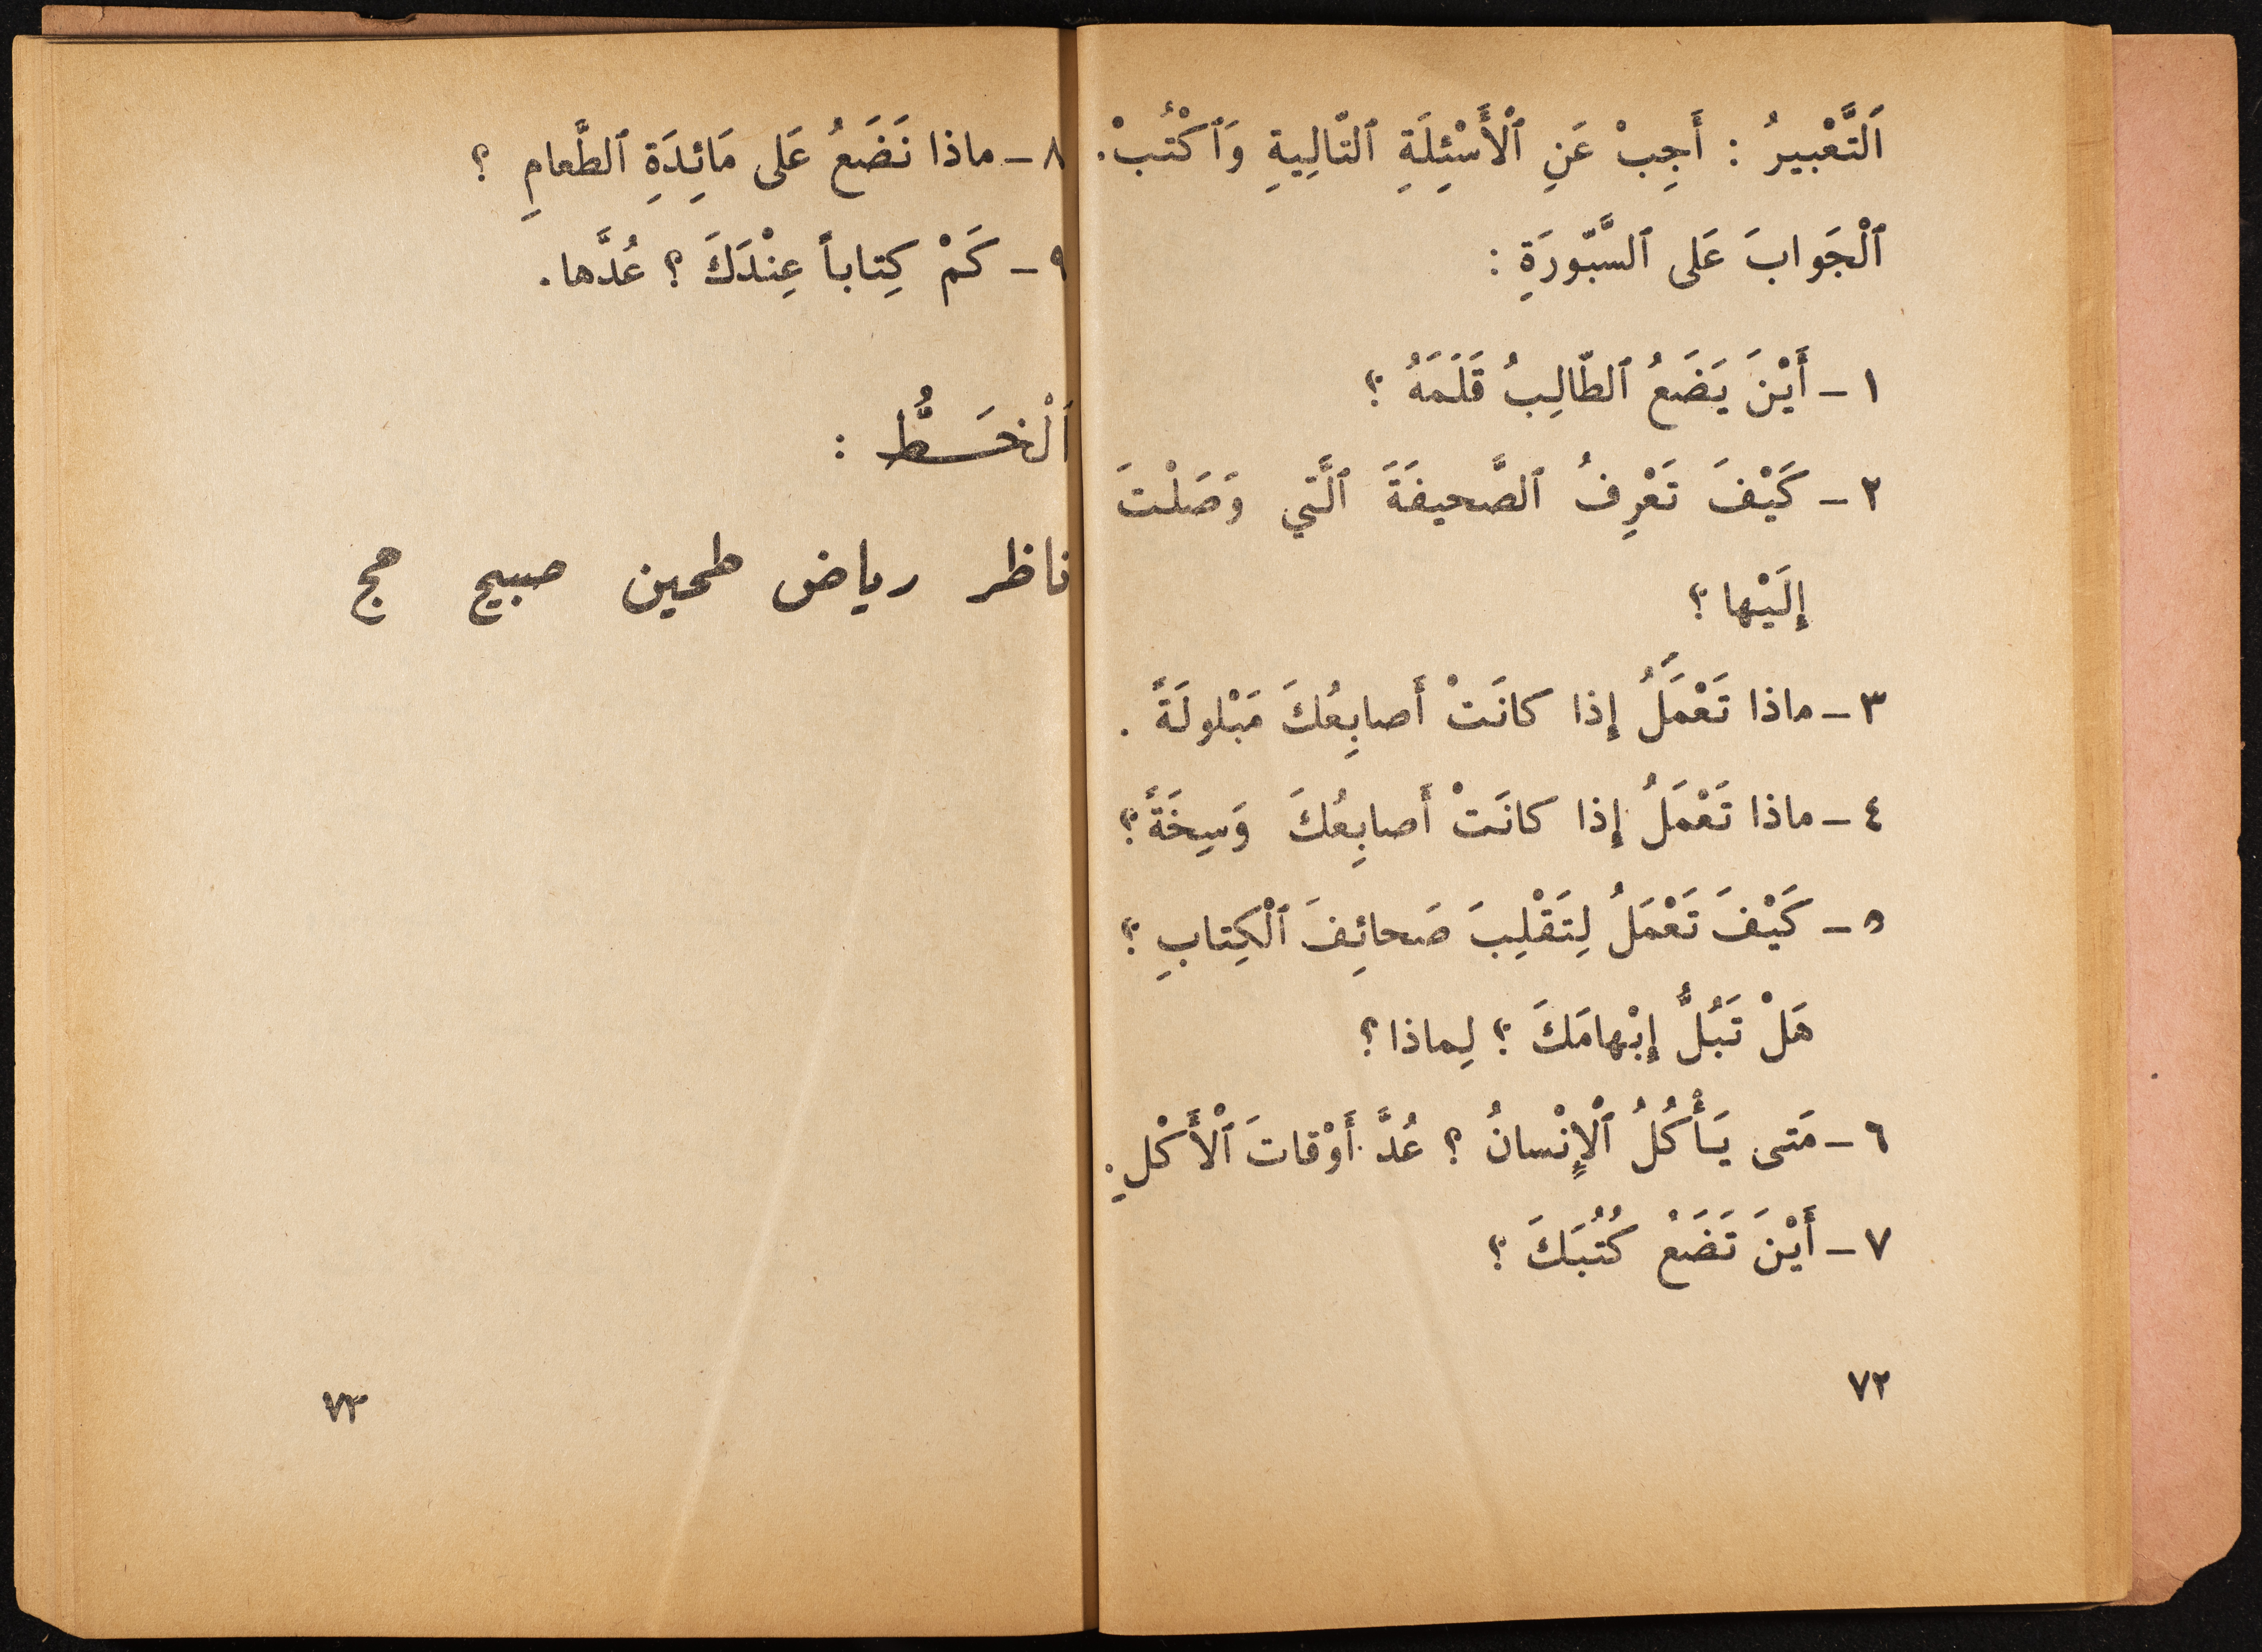 اَلتَّعْبيرُ : أَجِبْ عَنِ ٱلْأَسْئِلَةِ ٱلتّالِيةِ وَٱكْتُبْ.
ٱلْجَوابَ عَلى ٱلسَّبّورَةِ :
١ - أَيْنَ يَضَعُ ٱلطّالِبُ قَلَمَهُ ؟
٢ - كَيْفَ تَعْرِفُ ٱلصَّحيفَةَ ٱلَّتي وَصَلْتَ
إِلَيْها ؟
٣ - ماذا تَعْمَلُ إِذا كانَتْ أَصابِعُكَ مَبْلولَةً .
٤ - ماذا تَعْمَلُ إِذا كانَتْ أَصابِعُكَ وَسِخَةً ؟
٥ - كَيْفَ تَعْمَلُ لِتَقْلِبَ صَحائِفَ ٱلْكِتابِ ؟
هَلْ تَبُلُّ إِبْهامَكَ ؟ لِماذا ؟
٦ - مَتى يَأْكُلُ ٱلْإِنْسانُ ؟ عُدَّ أَوْقاتَ ٱلْأَكْلِ.
٧ - أَيْنَ تَضَعُ كُتُبَكَ ؟
٧٢
٨ - ماذا نَضَعُ عَلى مَائِدَةِ ٱلطَّعامِ ؟
٩ - كَمْ كِتاباً عِنْدَكَ ؟ عُدَّها.
اَلْخَـــطُّ :
ناظر رياض طحين صبيح حج
٧٣